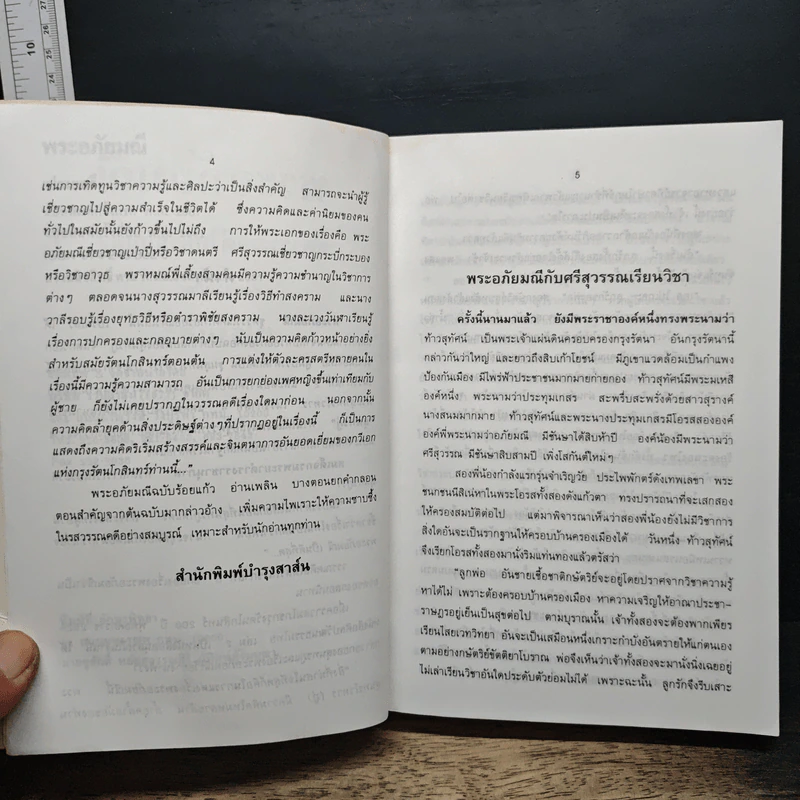 4
เช่นการเทิดทูนวิชาความรู้และศิลปะว่าเป็นสิ่งสำคัญ สามารถจะนำผู้รู้
เชี่ยวชาญไปสู่ความสำเร็จในชีวิตได้ ซึ่งความคิดและค่านิยมของคน
ทั่วไปในสมัยนั้นยังก้าวขึ้นไปไม่ถึง การให้พระเอกของเรื่องคือ พระ
อภัยมณีเชี่ยวชาญเป่าปี่หรือวิชาดนตรี ศรีสุวรรณเชี่ยวชาญกระบี่กระบอง
หรือวิชาอาวุธ พราหมณ์พี่เลี้ยงสามคนมีความรู้ความชำนาญในวิชาการ
ต่างๆ ตลอดจนนางสุวรรณมาลีเรียนรู้เรื่องวิธีทำสงคราม และนาง
วาลีรอบรู้เรื่องยุทธวิธีหรือตำราพิชัยสงคราม นางละเวงวัณฬาเรียนรู้
เรื่องการปกครองและกลอุบายต่างๆ นับเป็นความคิดก้าวหน้าอย่างยิ่ง
สำหรับสมัยรัตนโกสินทร์ตอนต้น การแต่งให้ตัวละครสตรีหลายคนใน
เรื่องนี้มีความรู้ความสามารถ อันเป็นการยกย่องเพศหญิงขึ้นเท่าเทียมกับ
ผู้ชาย ก็ยังไม่เคยปรากฏในวรรณคดีเรื่องใดมาก่อน นอกจากนั้น
ความคิดล้ำยุคด้านสิ่งประดิษฐ์ต่างๆที่ปรากฏอยู่ในเรื่องนี้ ก็เป็นการ
แสดงถึงความคิดริเริ่มสร้างสรรค์และจินตนาการอันยอดเยี่ยมของกวีเอก
แห่งกรุงรัตนโกสินทร์ท่านนี้..."
พระอภัยมณีฉบับร้อยแก้ว อ่านเพลิน บางตอนยกคำกลอน
ตอนสำคัญจากต้นฉบับมากล่าวอ้าง เพิ่มความไพเราะให้ความซาบซึ้ง
ในรสวรรณคดีอย่างสมบูรณ์ เหมาะสำหรับนักอ่านทุกท่าน
สำนักพิมพ์บำรุงสาส์น
5
พระอภัยมณีกับศรีสุวรรณเรียนวิชา
ครั้งนี้นานมาแล้ว ยังมีพระราชาองค์หนึ่งทรงพระนามว่า
ท้าวสุทัศน์ เป็นพระเจ้าแผ่นดินครอบครองกรุงรัตนา อันกรุงรัตนานี้
กล่าวกันว่าใหญ่ และยาวถึงสิบเก้าโยชน์ มีภูเขาแวดล้อมเป็นกำแพง
ป้องกันเมือง มีไพร่ฟ้าประชาชนมากมายก่ายกอง ท้าวสุทัศน์มีพระมเหสี
องค์หนึ่ง พระนามว่าประทุมเกสร สะพรึบสะพรั่งด้วยสาวสุรางค์
นางสนมมากมาย ท้าวสุทัศน์และพระนางประทุมเกสรมีโอรสสององค์
องค์พี่พระนามว่าอภัยมณี มีชันษาได้สิบห้าปี องค์น้องมีพระนามว่า
ศรีสุวรรณ มีชันษาสิบสามปี เพิ่งโสกันต์ใหม่ๆ
สองพี่น้องกำลังแรกรุ่นจำเริญวัย ประไพพักตร์ดังเทพเลขา พระ
ชนกชนนีสิเน่หาในพระโอรสทั้งสองดังแก้วตา ทรงปรารถนาที่จะเสกสอง
ให้ครองสมบัติต่อไป แต่มาพิจารณาเห็นว่าสองพี่น้องยังไม่มีวิชาการ
สิ่งใดอันจะเป็นรากฐานให้ครอบบ้านครองเมืองได้ วันหนึ่ง ท้าวสุทัศน์
จึงเรียกโอรสทั้งสองมานั่งริมแท่นทองแล้วตรัสว่า
"ลูกพ่อ อันชายเชื้อชาติกษัตริย์จะอยู่โดยปราศจากวิชาความรู้
หาได้ไม่ เพราะต้องครอบบ้านครองเมือง หาความเจริญให้อาณาประชา-
ราษฎรอยู่เย็นเป็นสุขต่อไป ตามบุราณนั้น เจ้าทั้งสองจะต้องพากเพียร
เรียนไสยเวทวิทยา อันจะเป็นเสมือนหนึ่งเกราะกำบังอันตรายให้แก่ตนเอง
ตามอย่างกษัตริย์ขัตติยาโบราณ พ่อจึงเห็นว่าเจ้าทั้งสองจะมานั่งนิ่งเฉยอยู่
ไม่เล่าเรียนวิชาอันใดประดับตัวย่อมไม่ได้ เพราะฉะนั้น ลูกรักจึงรีบเสาะ
10
27
26
25
24